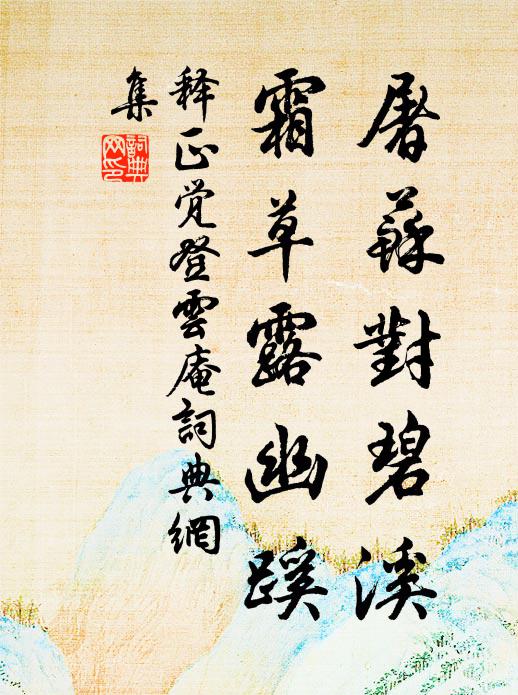 屠蘇對碧溪
霜草露幽蹊
释正觉登雲庵詞典網
集
詞典网印